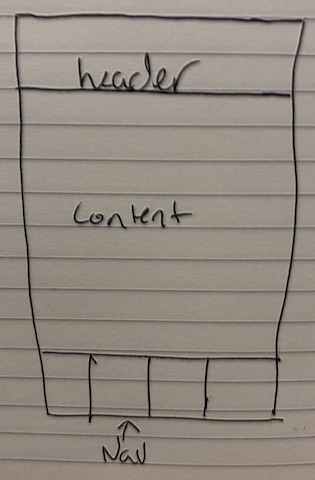 header
content
Nav